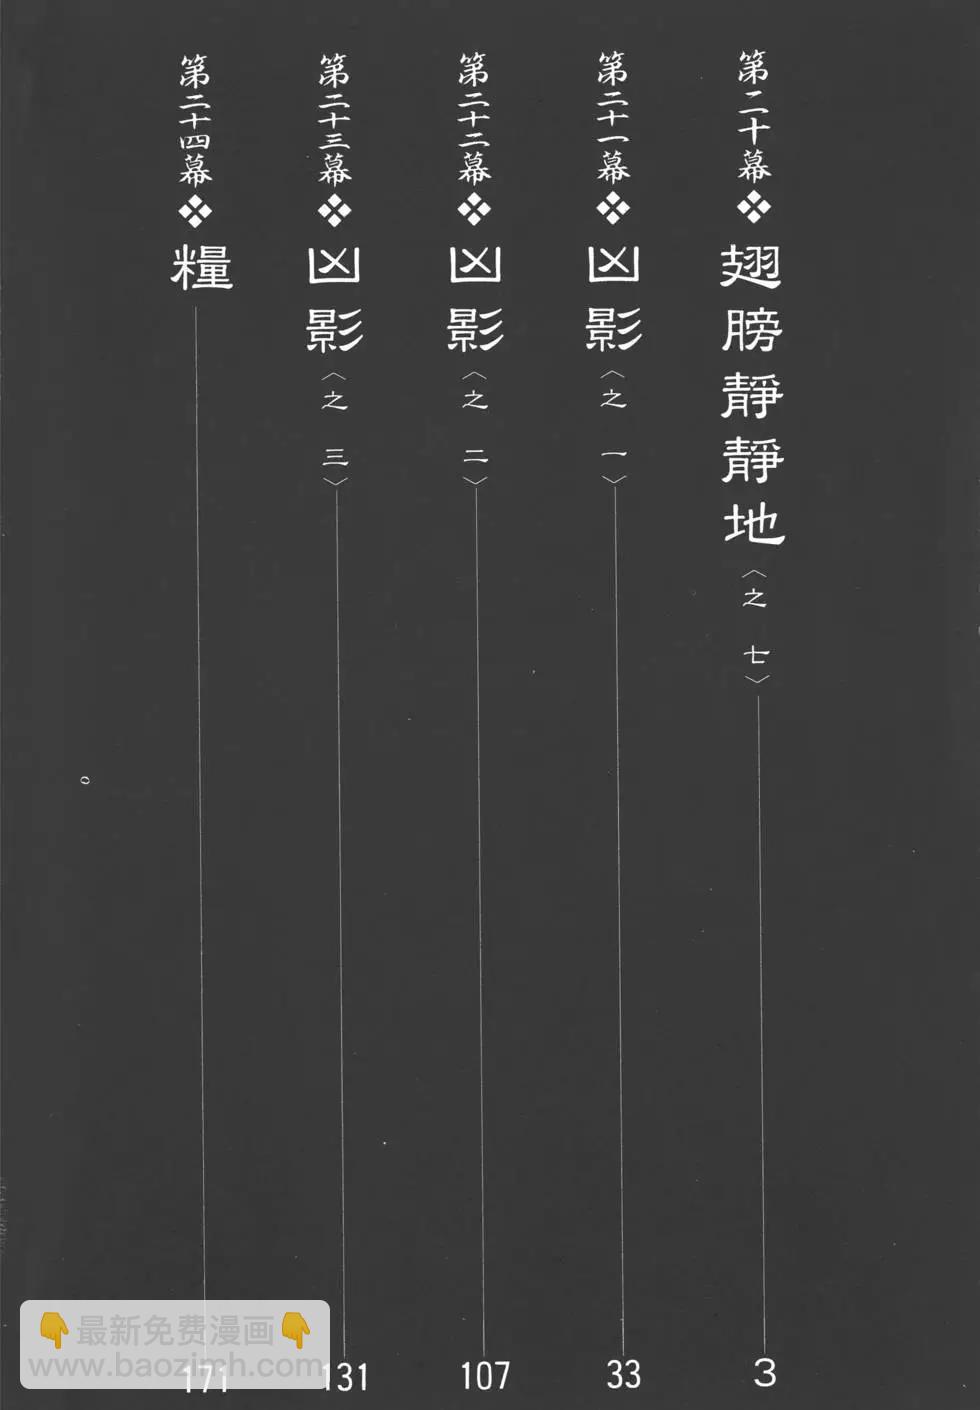 第二十幕❖翅膀靜靜地〈之七〉 3
第二十一幕❖凶影〈之一〉 33
第二十二幕❖凶影〈之二〉 107
第二十三幕❖凶影〈之三〉 131
第二十四幕❖糧 171
👇最新免费漫画👇
www.baozimh.com